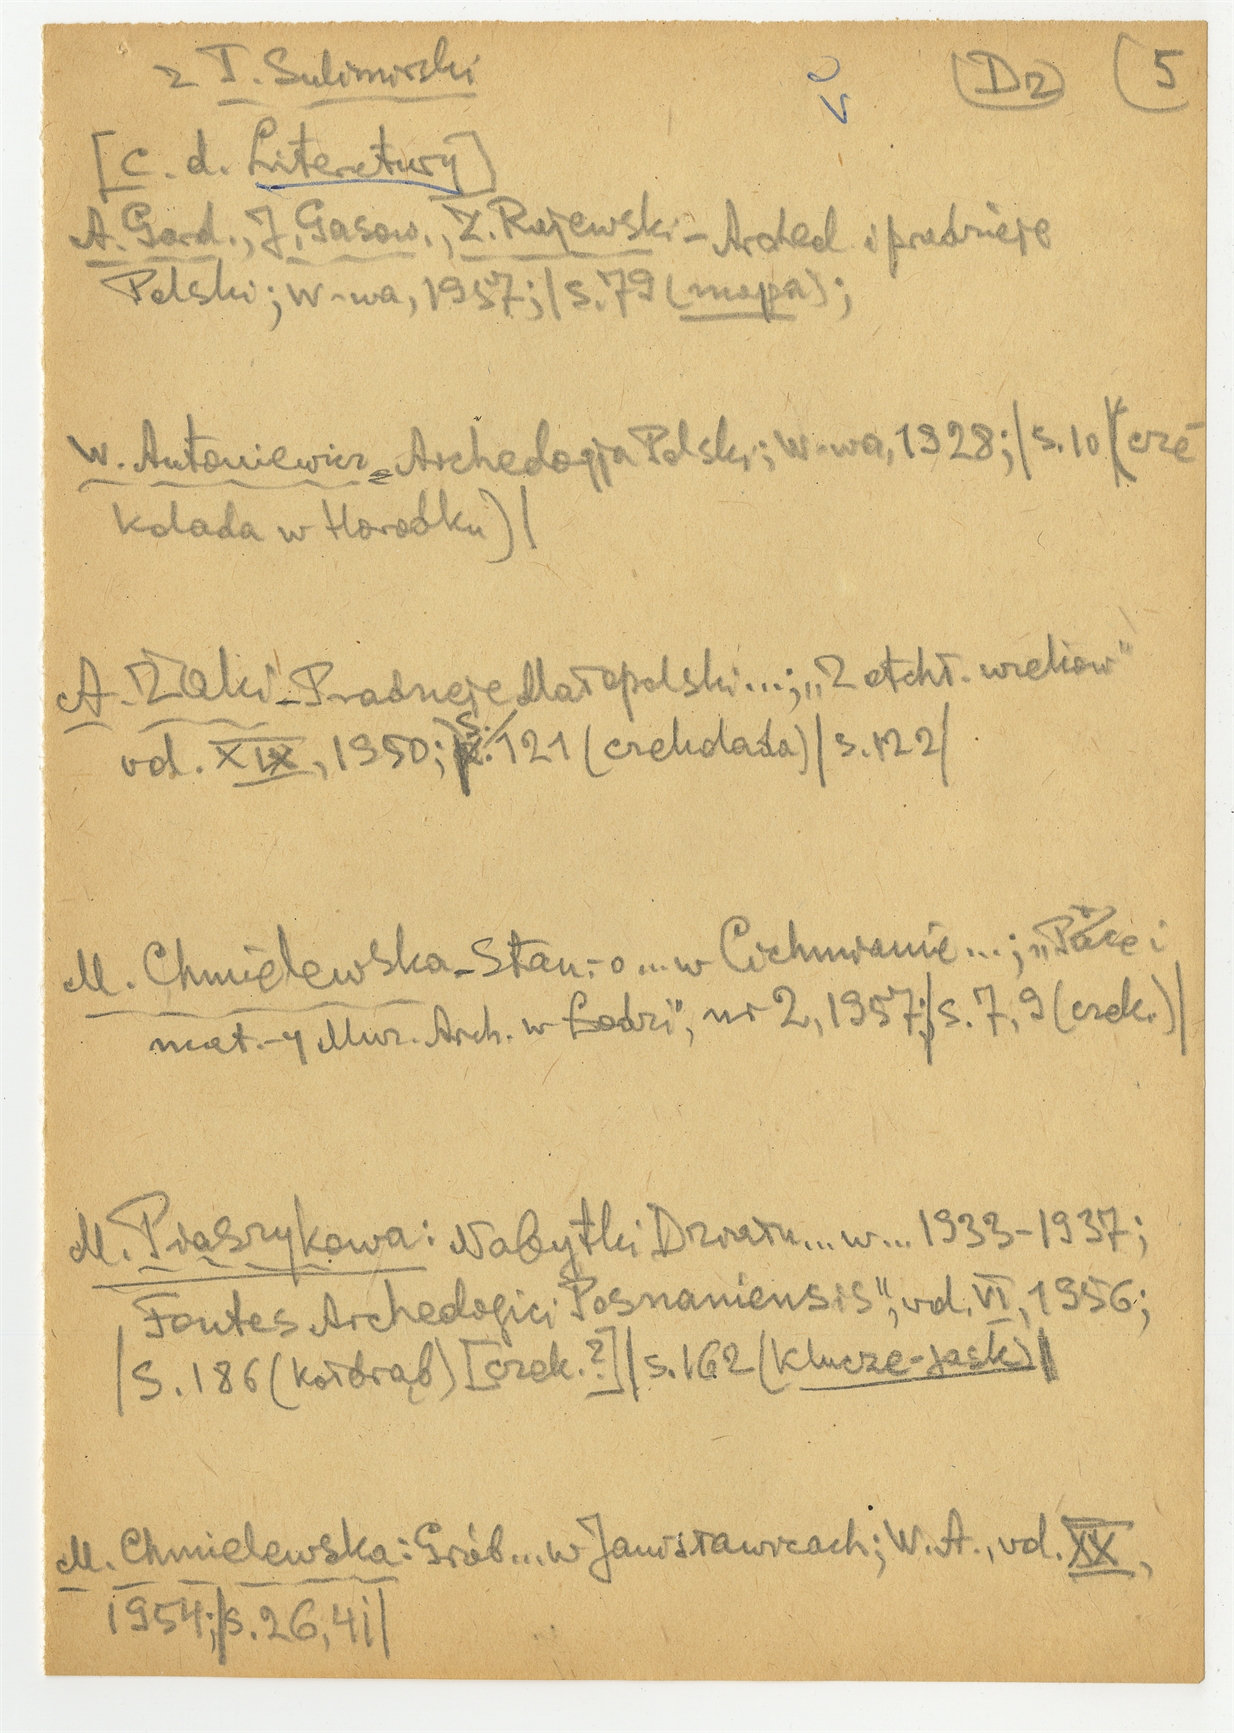 z T. Sulimirski (Dz) (5
[C. d. Literatury]
A. Gard., J. Gąsow., Z. Rajewski – Archeol i pradzieje
Polski; W-wa, 1957; |s. 79 (mapa);
W. Antoniewicz – Archeologja Polski; W-wa, 1928; |s. 10 (cze
kolada w Horodku)|
A. Żaki – Pradzieje Małopolski...; „Z otchł. wieków"
vol. XIX, 1950; s. 121 (czekolada)| s. 122|
M. Chmielewska – Stan.-o ... w Cichmianie...; „Prace i
mat.-y Muz. Arch. w Łodzi", nr 2, 1957; |s. 7, 9 (czek.)|
M. Piaszykowa: Nabytki Działu ... w ... 1933-1937;
Fontes Archeologici Posnaniensis", vol. VI, 1956;
|S. 186 (Kołdrąb) [czek.?]| s. 162 (Klucze-jask)|
M. Chmielewska: Grób ... w Janisławicach; W. A., vol. XX,
1954; |s. 26, 41|